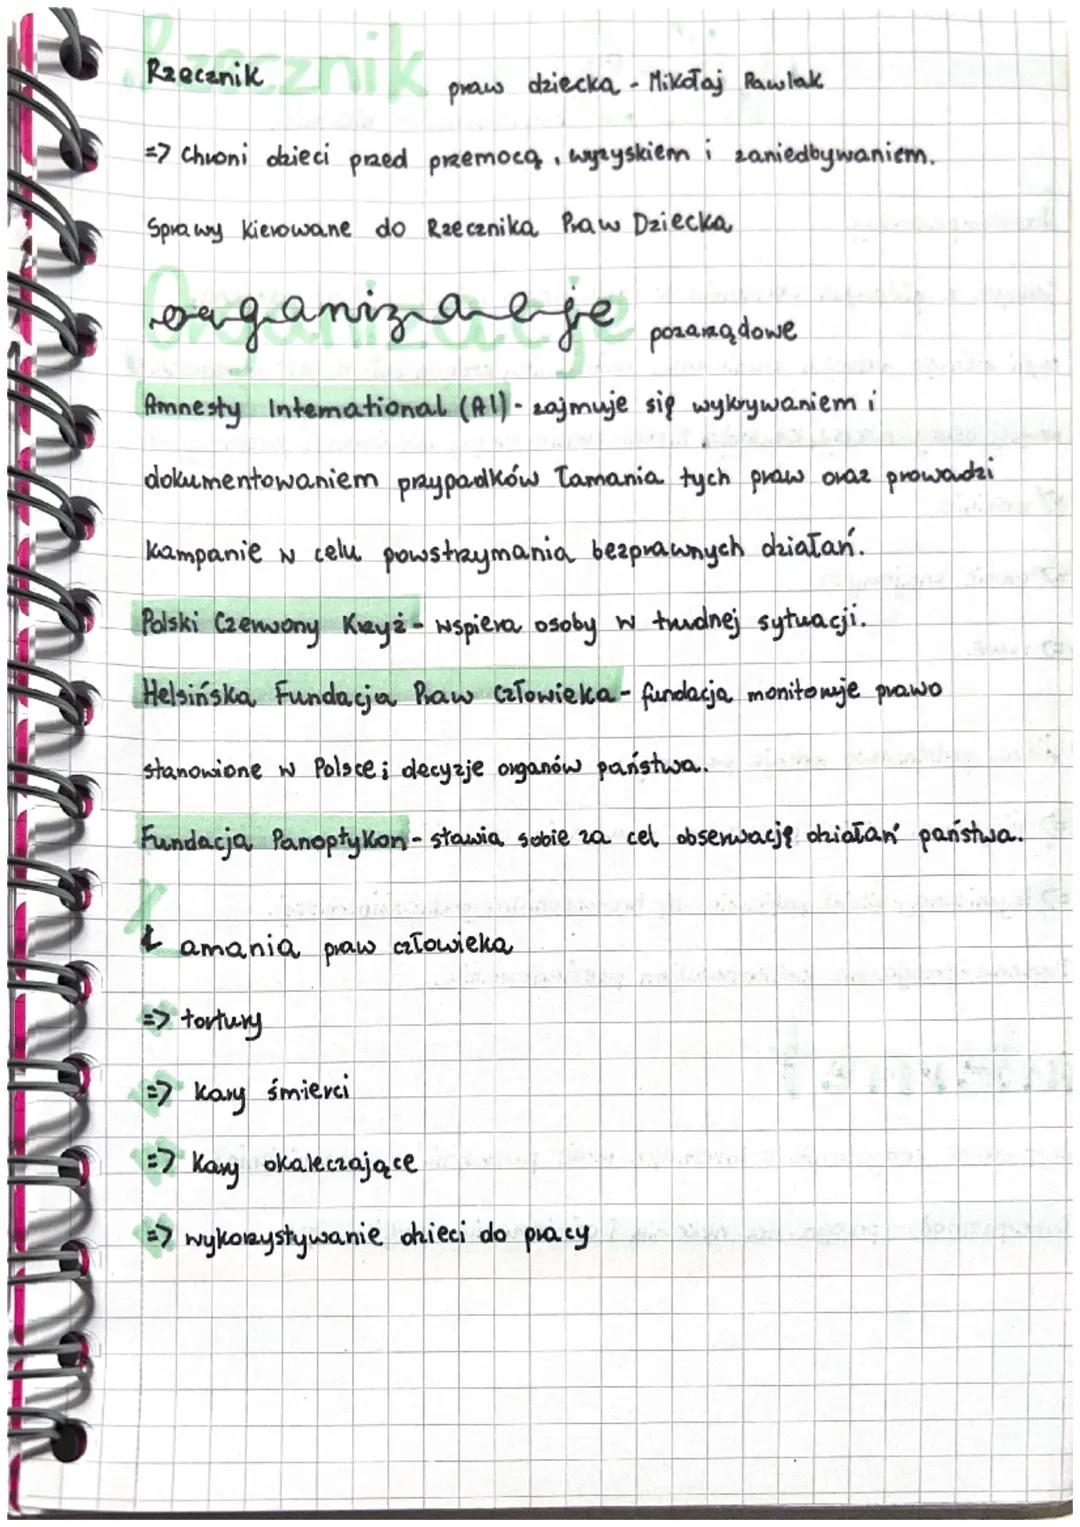 Rzecznik praw dziecka - Mikołaj Pawlak
=> Chroni dzieci przed przemocą, wyzyskiem i zaniedbywaniem.
Sprawy kierowane do Rzecznika Praw Dziecka
organizacje pozarządowe
Amnesty International (AI) - zajmuje się wykrywaniem i
dokumentowaniem przypadków łamania tych praw oraz prowadzi
kampanie w celu powstrzymania bezprawnych działań.
Polski Czerwony Krzyż - wspiera osoby w trudnej sytuacji.
Helsińska Fundacja Praw Człowieka - fundacja monitoruje prawo
stanowione w Polsce i decyzje organów państwa.
Fundacja Panoptykon - stawia sobie za cel obserwację działań państwa.
Łamania praw człowieka
=> tortury
=> kary śmierci
=> Kary okaleczające
=> wykorzystywanie dzieci do pracy